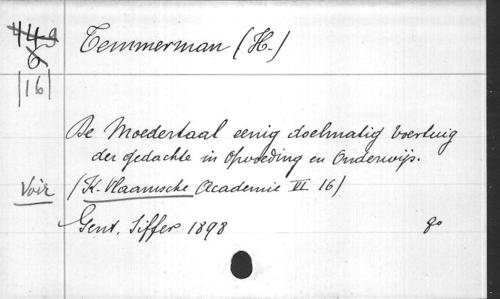 Temmerman (H.)
|16|
De Moedertaal eenig doelmatig Voertuig
der gedachte in Opvoeding en Onderwijs.
Voir (K. Vlaamsche Academie VI 16)
Gent. Siffer 1898 8o